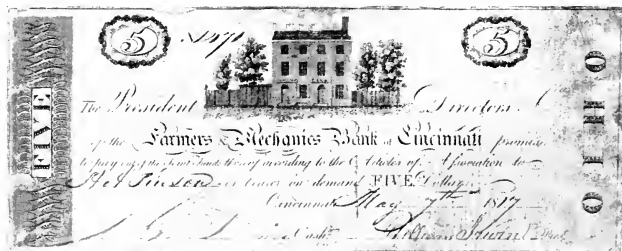 5 5
FIVE
OHIO
The President Directors
of the Farmers & Mechanics Bank of Cincinnati promise
to pay out of the Joint Funds thereof according to the Articles of Association to
or bearer on demand FIVE Dollars
Cincinnati May 7th 1817
Cashr.